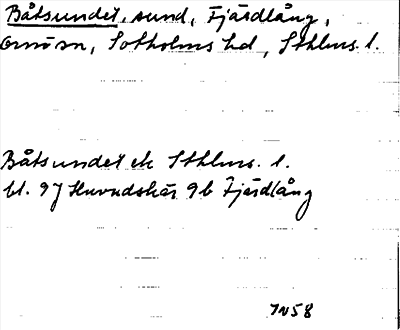 Båtsundet, sund, Fjärdlång,
Ornö sn, Sotholms hd, Sthlms l.
Båtsundet ek Sthlms. l.
bl. 97 Huvudskär 9b Fjärdlång
IN58